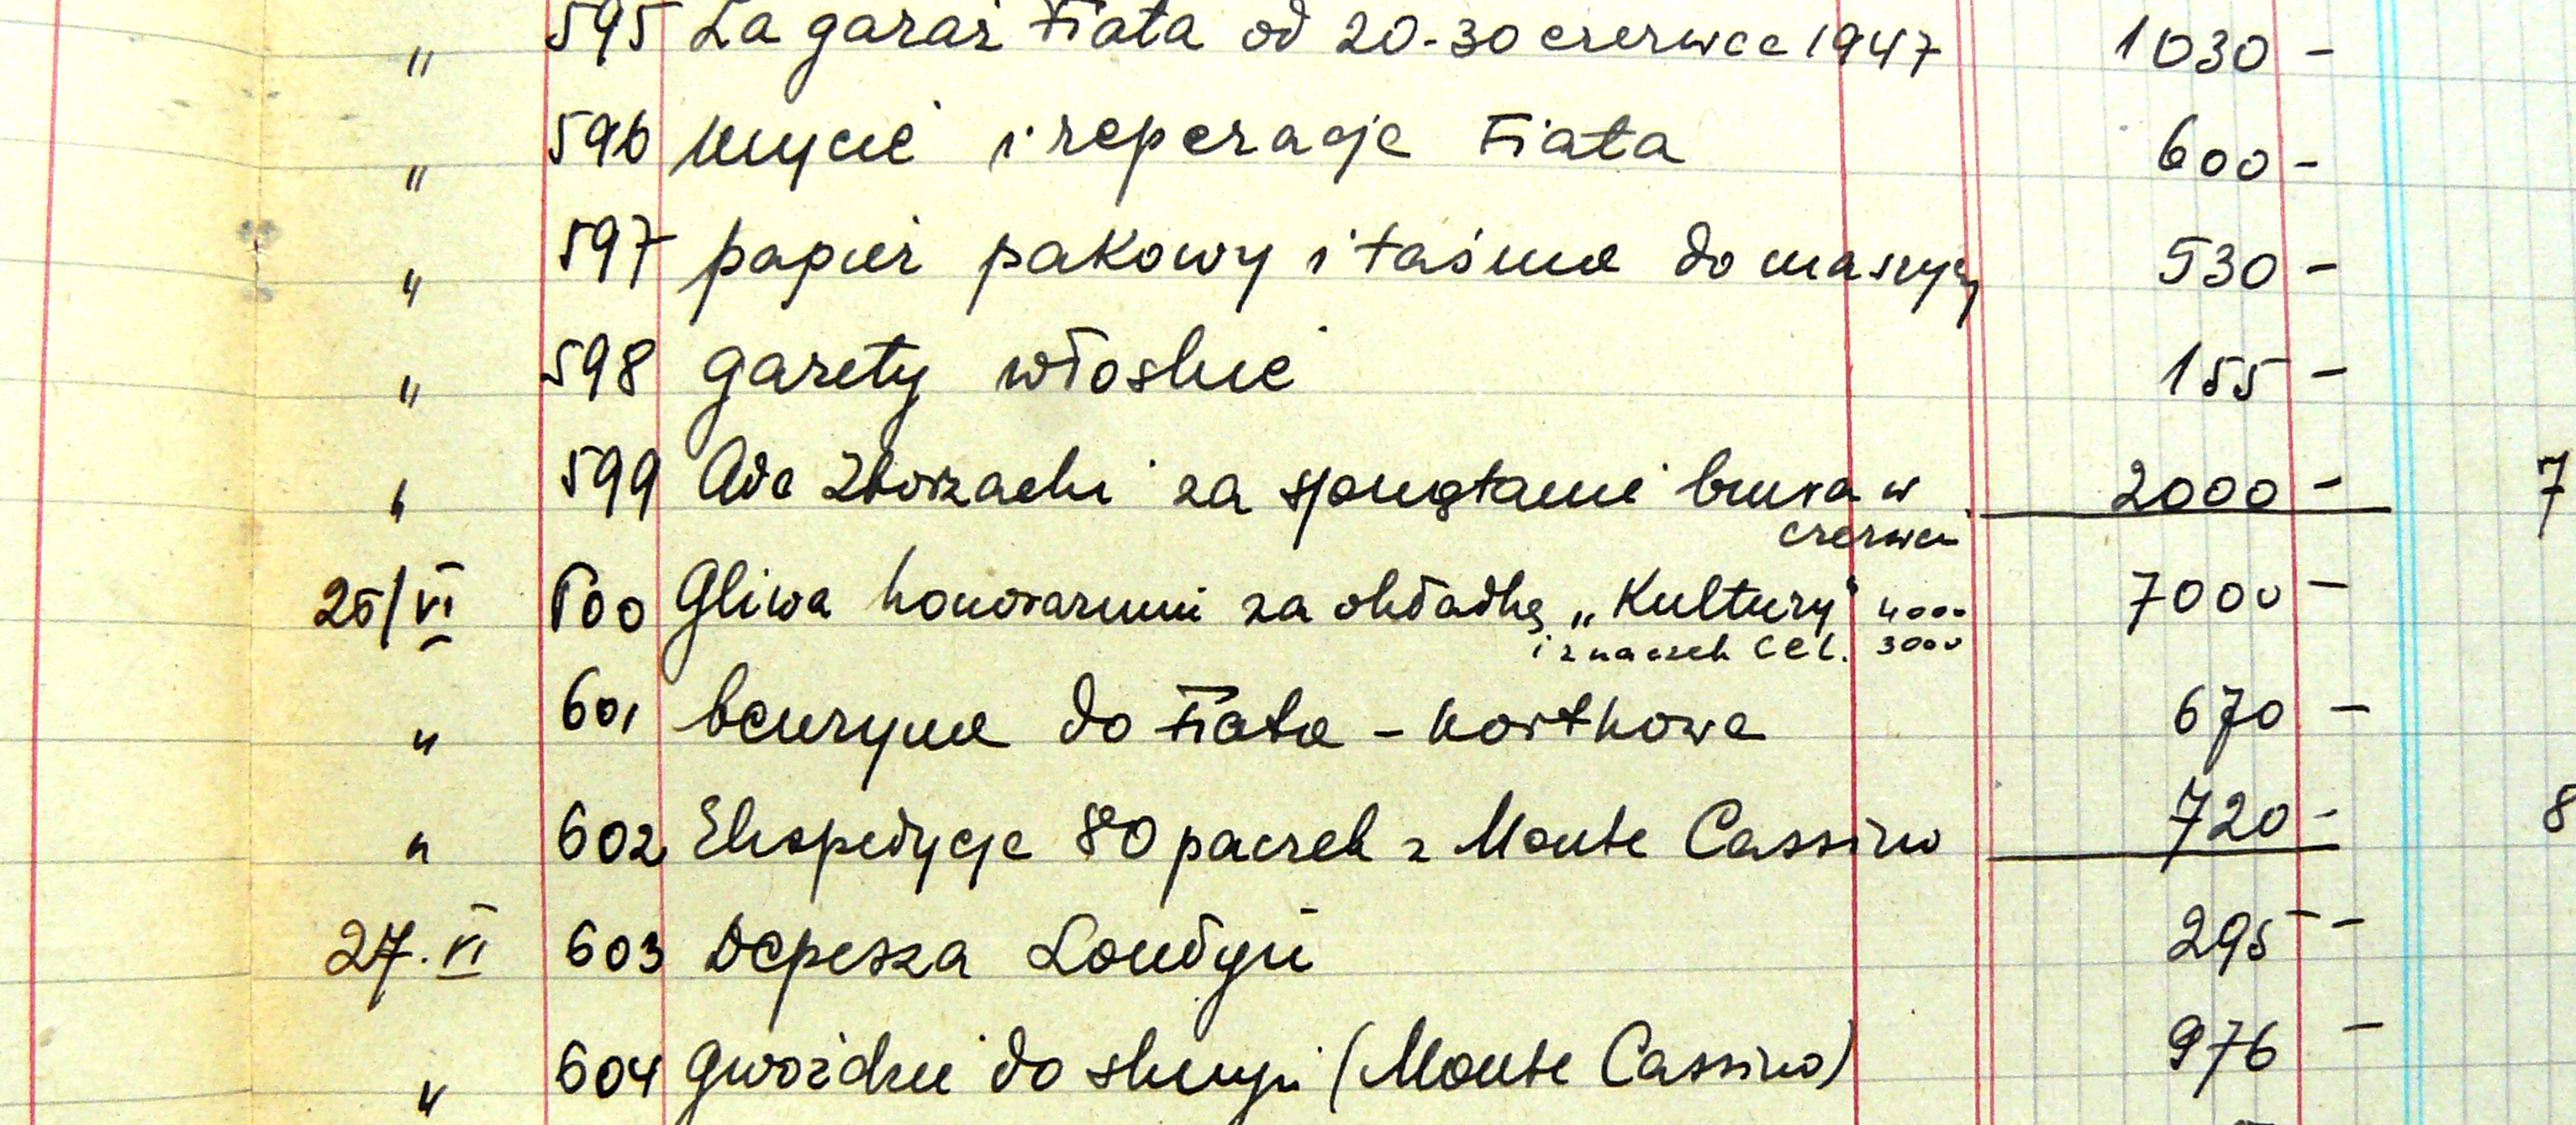 " 595 Za garaż Fiata od 20-30 czerwca 1947 1030 -
" 596 mycie i reperacje Fiata 600 -
" 597 papier pakowy i taśma do maszyny 530 -
" 598 gazety włoskie 155 -
" 599 Ada za sprzątanie biura w 2000 - 7
czerwcu
25/VI 600 Gliwa honorarium za okładkę „Kultury" 4000 7000 -
i znaczek CEL. 3000
" 601 benzyna do Fiata - kartkowa 670 -
" 602 Ekspedycja 80 paczek z Monte Cassino 720 - 8
27.VI 603 Depesza Londyn 295 -
" 604 gwoździe do skrzyń (Monte Cassino) 976 -